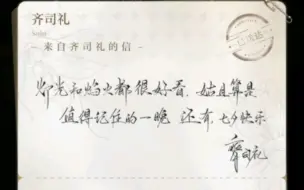 齐司礼
来自齐司礼的信
灯光和焰火都很好看,姑且算是
值得记住的一晚 还有,七夕快乐
齐司礼